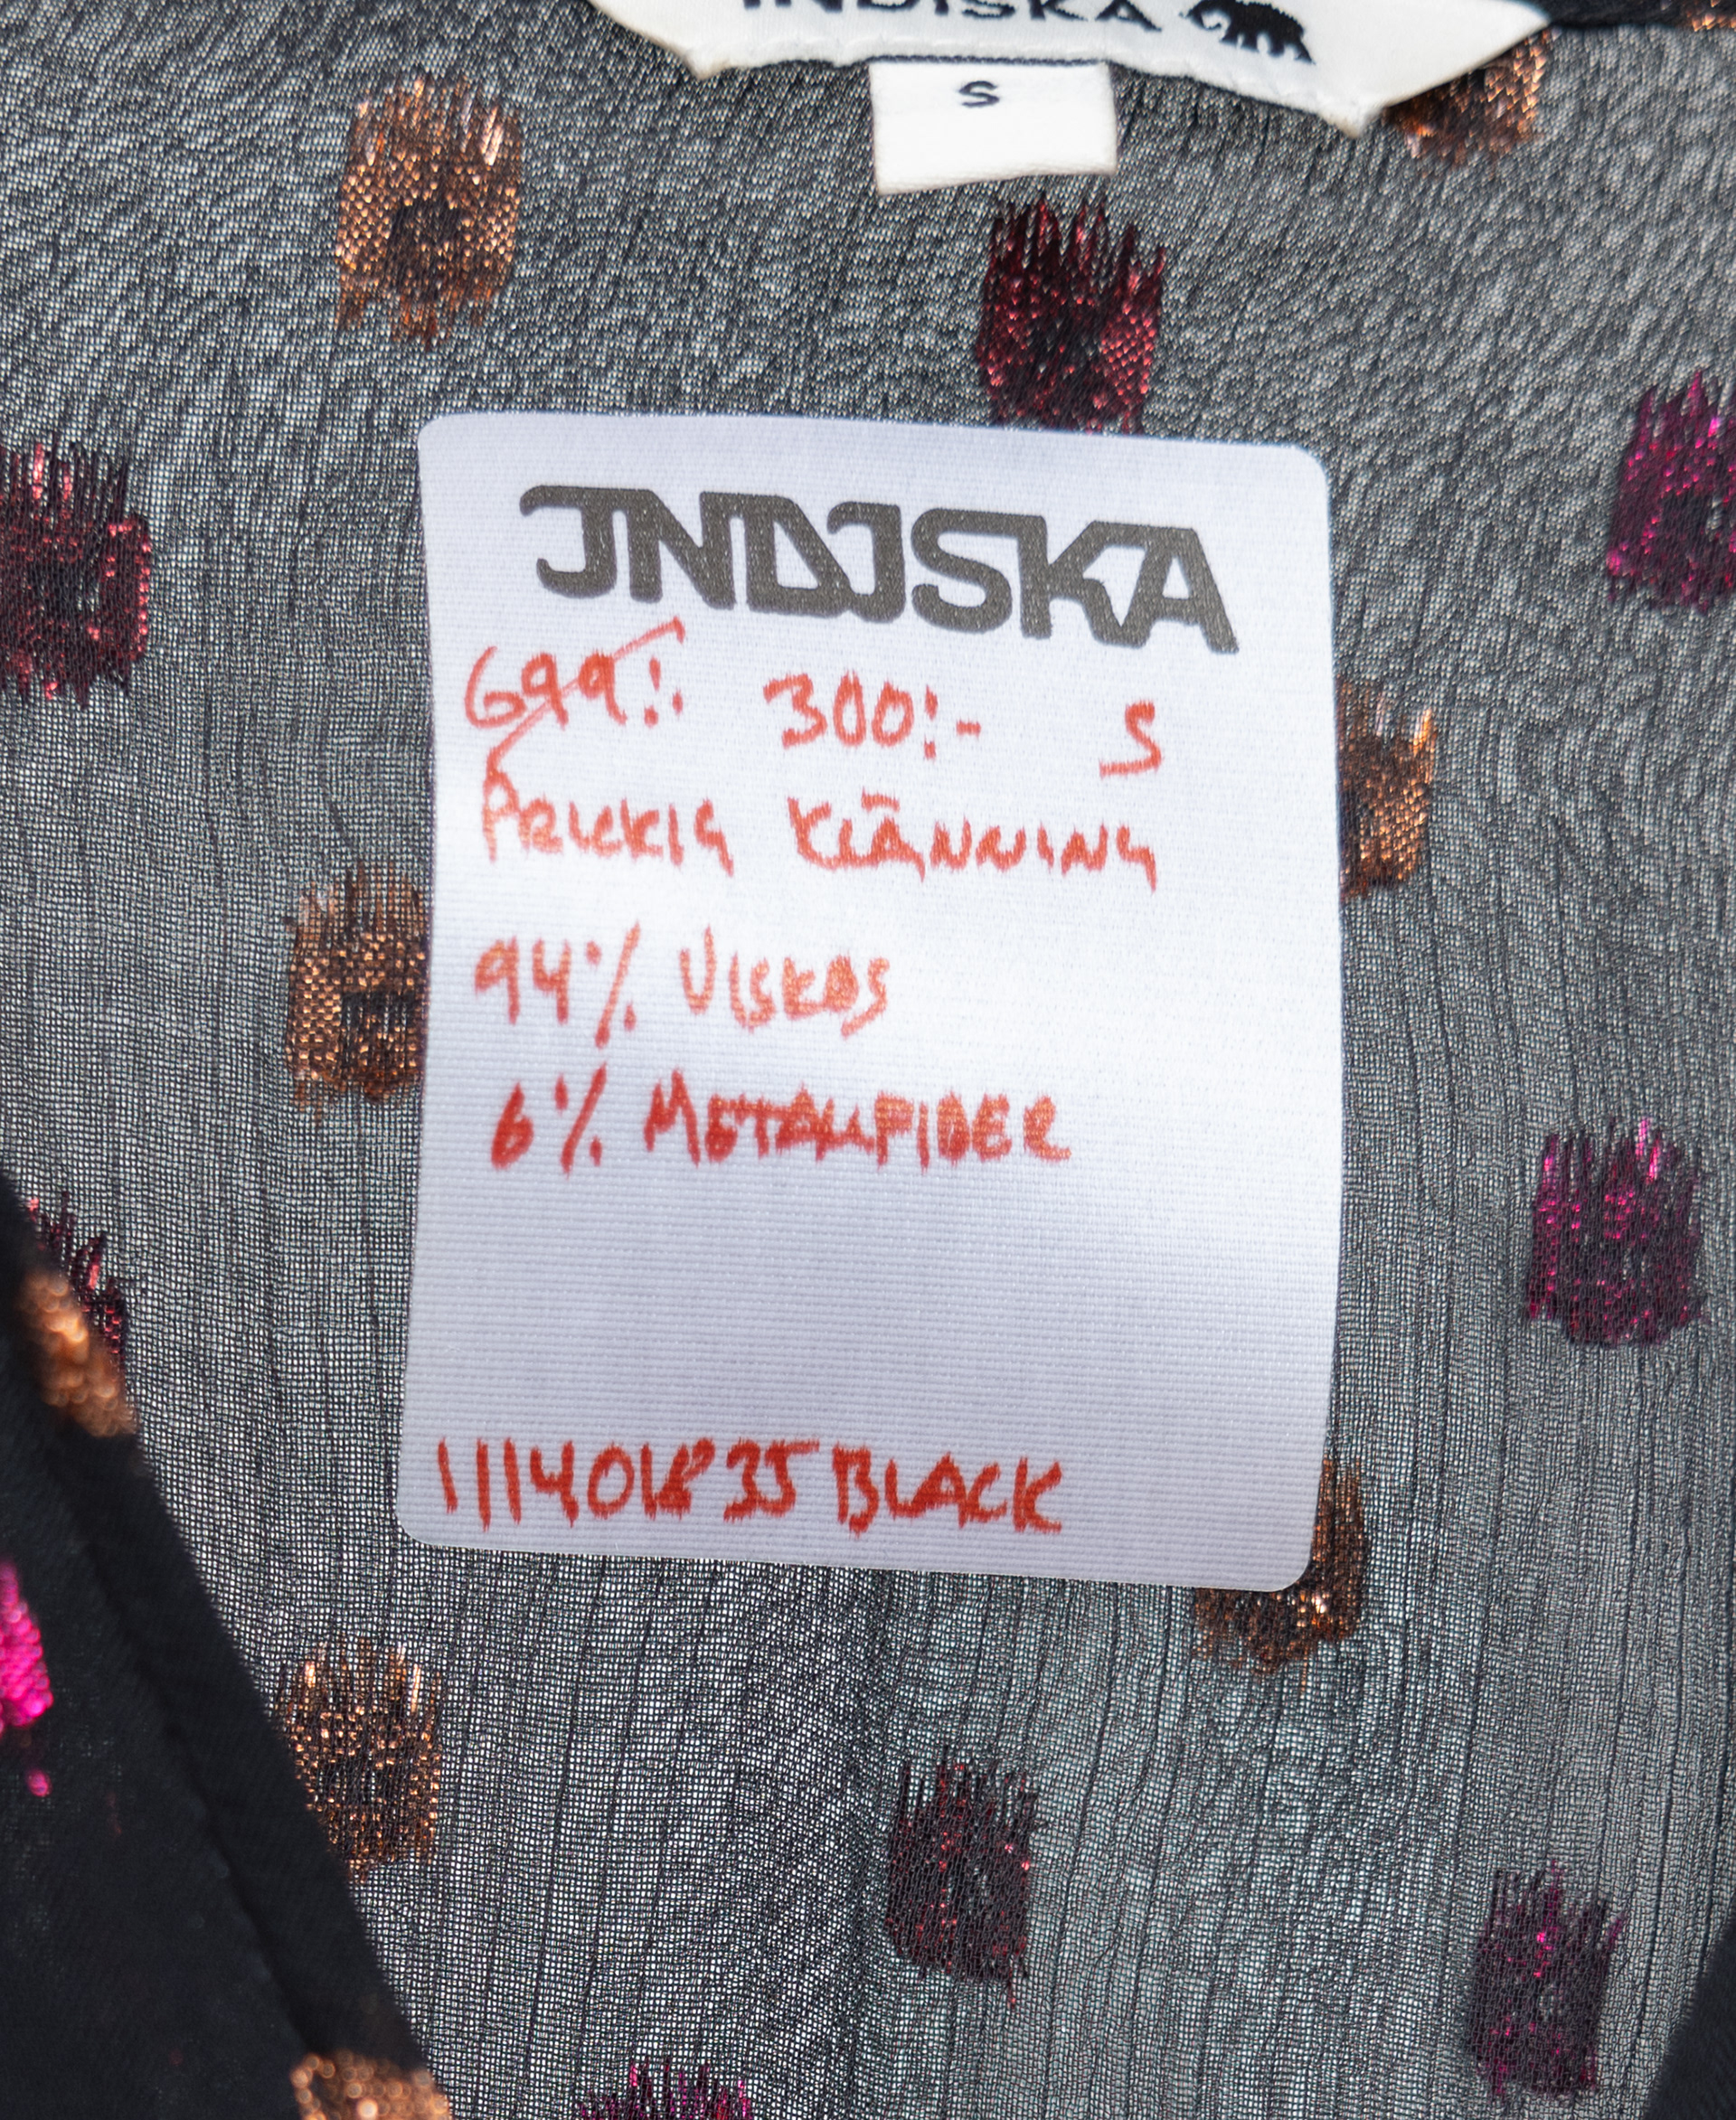 INDISKA
S
INDISKA
699:- 300:- S
PRICKIG KLÄNNING
94% VISKOS
6% METALLFIBER
1114018235 BLACK